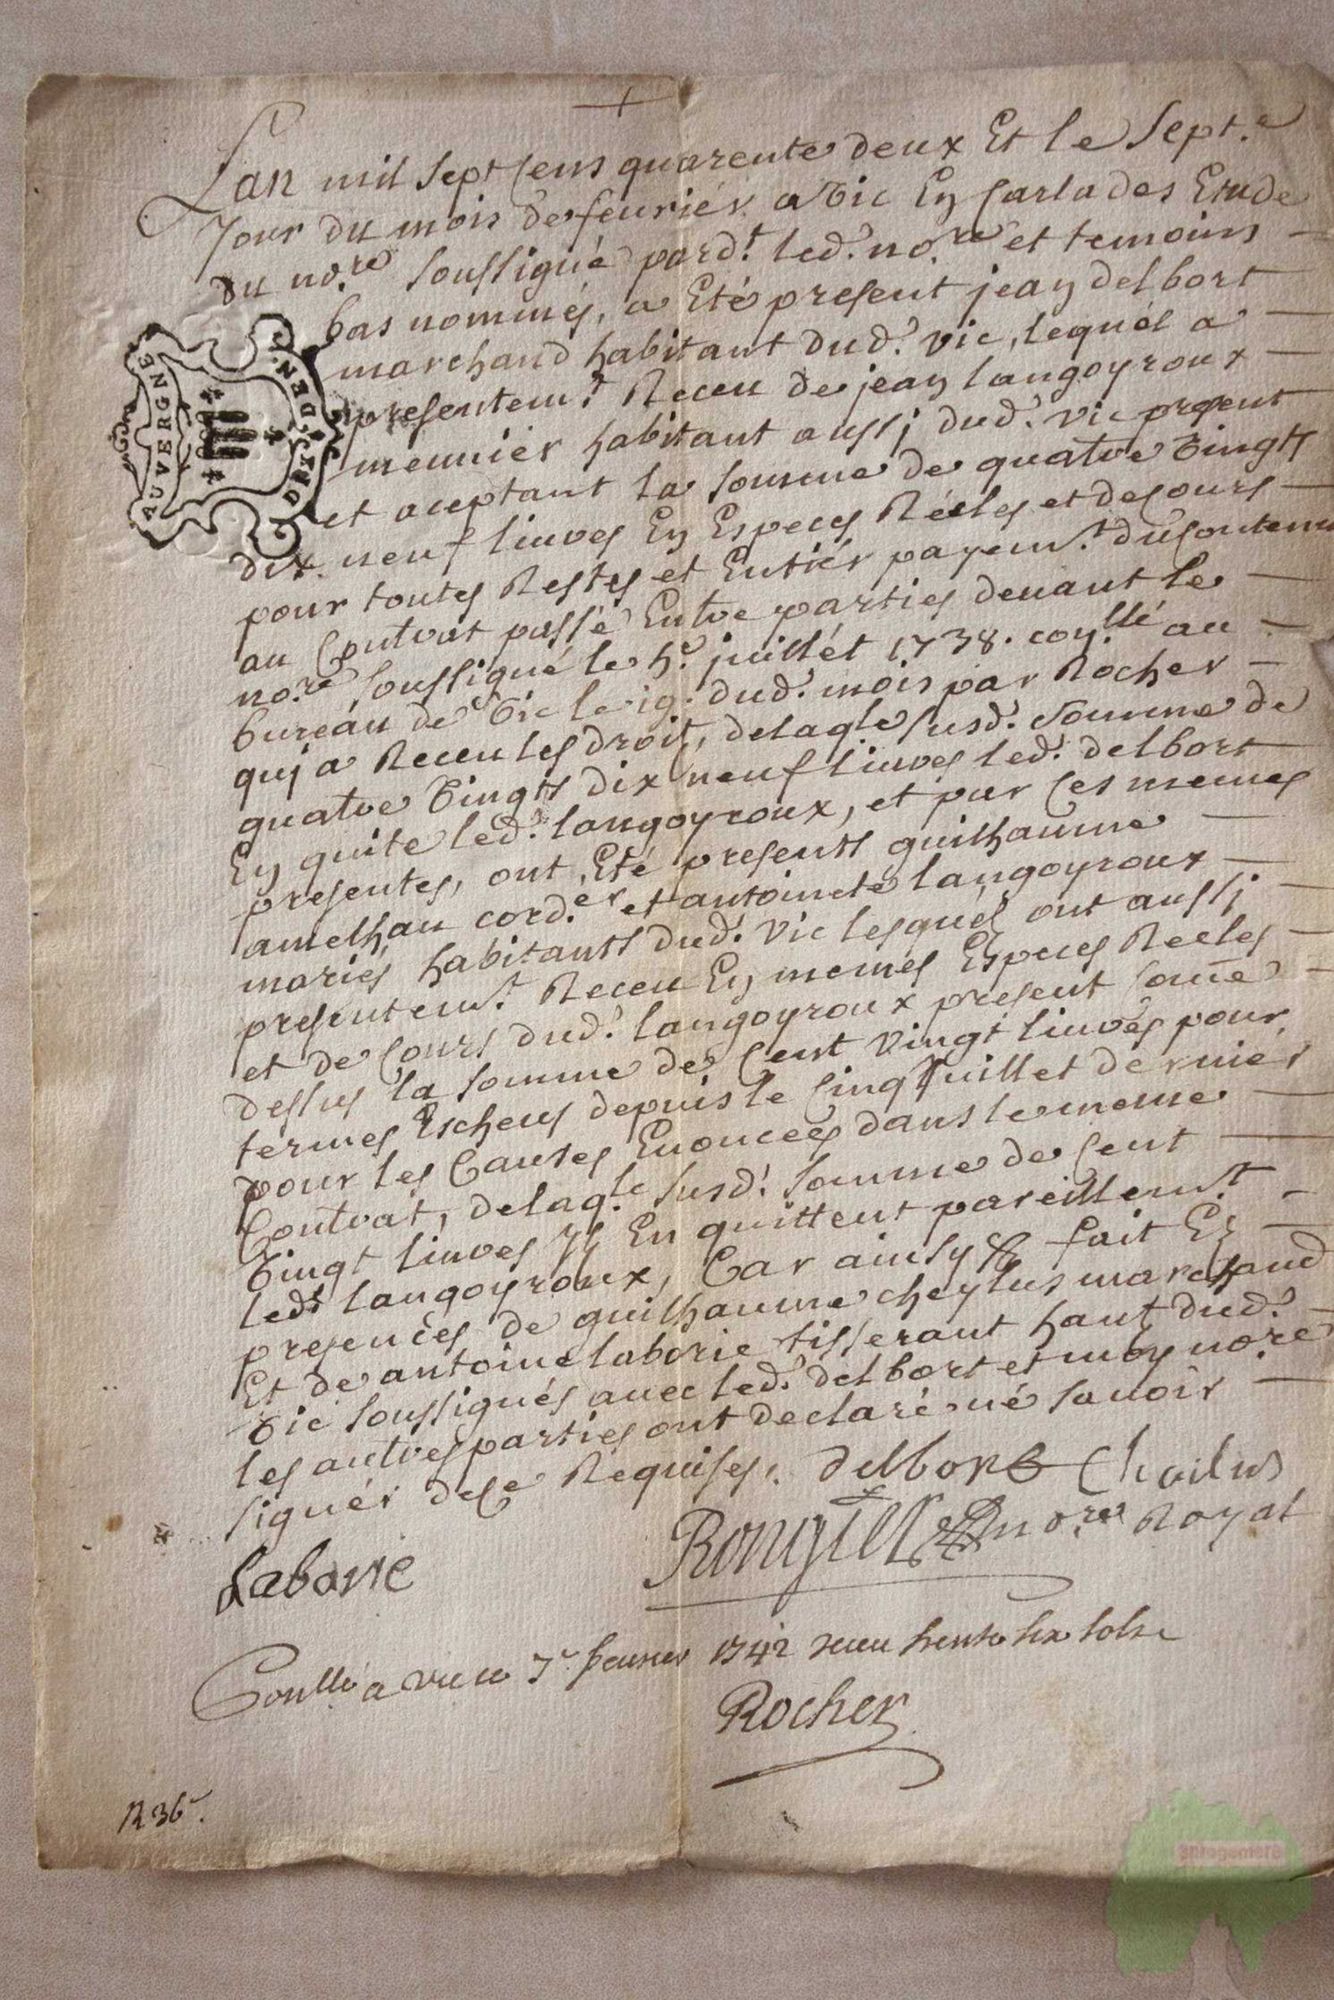 Lan mil sept Cens quarente deux Et le Sept.e
Jour du mois de feurier a Vic En Carlades Etude
du no.re soussigné pard.t led.t no.re et temoins
bas nommés, a Eté present jean delbort
marchand habitant dud.t vic, lequel a
presentem.t Receu de jean langoyroux
meunier habitant aussj dud.t vic present
et aceptant la somme de quatre vingts
dix neuf liures En Especes Réeles et de Cours
pour toutes Restes et Entier payem.t du Contenu
au Contrat passé Entre parties deuant le
no.re soussigné le 5.e juillét 1738. con.llé au
bureau de Vic le 19. dud.t mois par Rocher
quj a Receu les droits, delaq.le susd.t somme de
quatre vingts dix neuf liures led.t delbort
En quite led.t langoyroux, et par Ces memes
presentes, ont Eté presents guilhaume
amelhau cord.er et antoinete langoyroux
mariés habitants dud.t vic lesquels ont aussi
presentem.t Receu En memes Especes Reeles
et de Cours dud.t langoyroux present come
dessus la somme de Cent vingt liures pour
termes Escheus depuis le Cinq Juillet dernier
pour les Causes Enoncées dans le meme
Contrat, delaq.le susd.t somme de Cent
vingt liures En quittent pareillem.t
led.t langoyroux, Car ainsy &c fait En
presences de guilhaume cheylus marchand
Et de antoine laborie tisserant hant dud.t
Vic soussignés auec led.t delbort et moy no.re
les autres parties ont declaré né sauoir
signér de Ce Requises. delbort Cheilus
Laborie no.re Royal
Conllé a vic le 7.e feurier 1742 receu trente six sols
Rocher
R 36s.
AUVERGNE